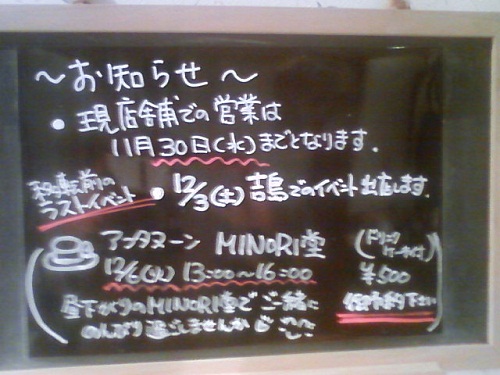 〜お知らせ〜
• 現店舗での営業は
11月30日(水)までとなります.
移転前の
ラストイベント
• 12/3(土) 吉島でのイベント出店します.
アフタヌーン MINORI堂
(ドリンク
ケーキ付)
12/6(火) 13:00〜16:00
¥500
昼下がりのMINORI堂で ご一緒に
のんびり過ごしませんか
予約下さい